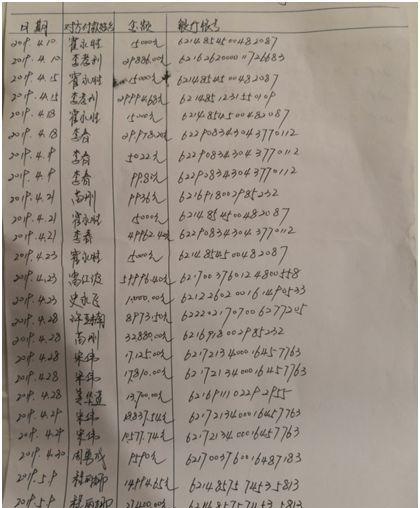 日期 对方付款姓名 金额 银行账号
2019.4.10 霍永胜 5000元 6214854500482087
2019.4.10 李彦刚 29886.00元 6216262000010726683
2019.4.15 霍永胜 15000元 6214854500482087
2019.4.15 李彦刚 29994.68元 6214851231550109
2019.4.18 霍永胜 15000元 6214854500482087
2019.4.18 李春 29978.20元 622908343043770112
2019.4.9 李春 5022元 622908343043770112
2019.4.9 李春 9980元 622908343043770112
2019.4.21 高刚 9936元 6216918002985232
2019.4.21 霍永胜 15000元 6214854500482087
2019.4.21 李春 49962.40元 622908343043770112
2019.4.23 霍永胜 5000元 6214854500482087
2019.4.23 59996.40元 6217003760124800558
2019.4.23 史永飞 10000.00元 6212260200161490533
2019.4.28 8973.50元 6222021707006277205
2019.4.28 高刚 32880.00元 6216918002985232
2019.4.28 宋伟 17125.00元 6217213400016457763
2019.4.28 宋伟 17810.00元 6217213400016457763
2019.4.28 13700.00元 6216911102292955
2019.4.29 宋伟 18837.54元 6217213400016457763
2019.4.29 宋伟 19577.74元 6217213400016457763
2019.4.30 9590元 6217003760016487183
2019.5.9 程丽娜 14994.65元 6214857574535813
2019.5.9 程丽娜 27400.00元 6214857574535813